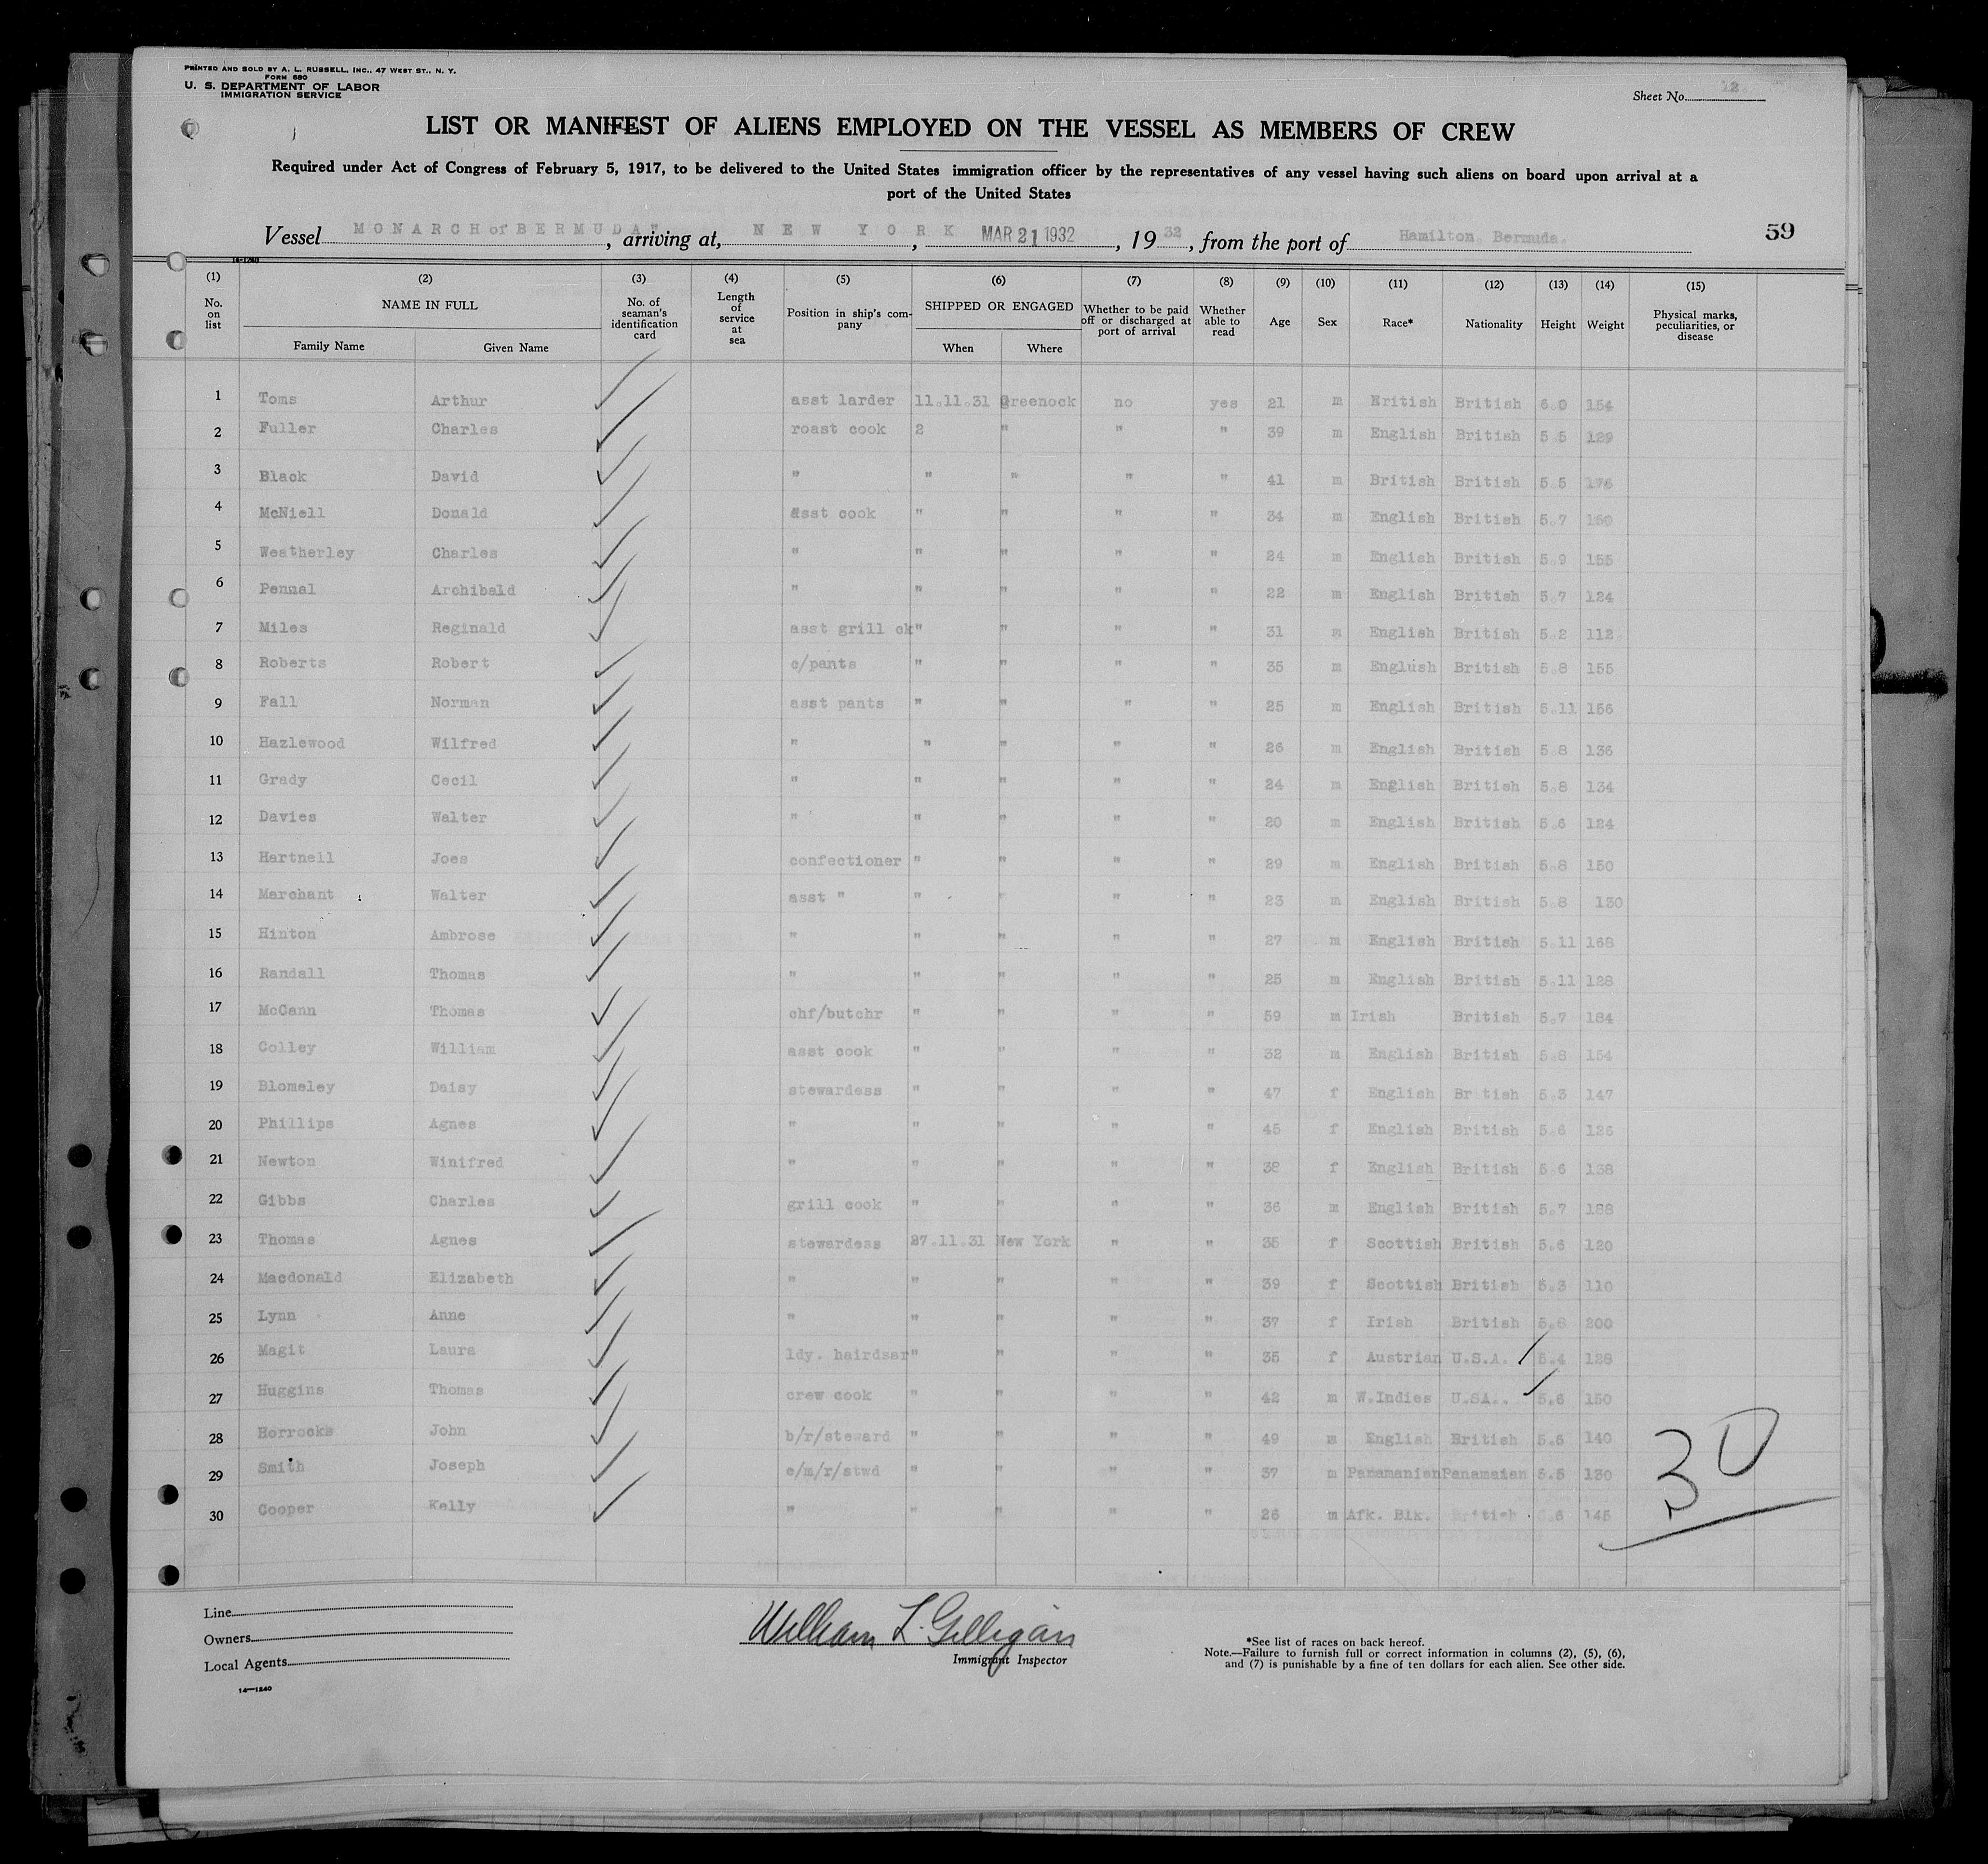 PRINTED AND SOLD BY A. L. RUSSELL, INC., 47 WEST ST., N. Y.
FORM 680
U. S. DEPARTMENT OF LABOR
IMMIGRATION SERVICE
Sheet No. 12
LIST OR MANIFEST OF ALIENS EMPLOYED ON THE VESSEL AS MEMBERS OF CREW
Required under Act of Congress of February 5, 1917, to be delivered to the United States immigration officer by the representatives of any vessel having such aliens on board upon arrival at a
port of the United States
Vessel MONARCH of BERMUDA", arriving at, NEW YORK, MAR 21 1932, 19 32, from the port of Hamilton, Bermuda. 59
14-1240
(1) (2) (3) (4) (5) (6) (7) (8) (9) (10) (11) (12) (13) (14) (15)
No. on list NAME IN FULL Family Name Given Name No. of seaman's identification card Length of service at sea Position in ship's company SHIPPED OR ENGAGED When Where Whether to be paid off or discharged at port of arrival Whether able to read Age Sex Race* Nationality Height Weight Physical marks, peculiarities, or disease
1 Toms Arthur asst larder 11.11.31 Greenock no yes 21 m British British 6.0 154
2 Fuller Charles roast cook 2 " " " 39 m English British 5.5 129
3 Black David " " " " " 41 m British British 5.5
4 McNiell Donald asst cook " " " " 34 m English British 5.7 150
5 Weatherley Charles " " " " " 24 m English British 5.9 155
6 Pennal Archibald " " " " " 22 m English British 5.7 124
7 Miles Reginald asst grill ck " " " " 31 m English British 5.2 112
8 Roberts Robert c/pants " " " " 35 m English British 5.8 155
9 Fall Norman asst pants " " " " 25 m English British 5.11 156
10 Hazlewood Wilfred " " " " " 26 m English British 5.8 136
11 Grady Cecil " " " " " 24 m English British 5.8 134
12 Davies Walter " " " " " 20 m English British 5.6 124
13 Hartnell Joes confectioner " " " " 29 m English British 5.8 150
14 Marchant Walter asst " " " " " 23 m English British 5.8 130
15 Hinton Ambrose " " " " " 27 m English British 5.11 168
16 Randall Thomas " " " " " 25 m English British 5.11 128
17 McCann Thomas chf/butchr " " " " 59 m Irish British 5.7 184
18 Colley William asst cook " " " " 32 m English British 5.8 154
19 Blomeley Daisy stewardess " " " " 47 f English Br tish 5.3 147
20 Phillips Agnes " " " " " 45 f English British 5.6 126
21 Newton Winifred " " " " " 38 f English British 5.6 138
22 Gibbs Charles grill cook " " " " 36 m English British 5.7 188
23 Thomas Agnes stewardess 27.11.31 New York " " 35 f Scottish British 5.6 120
24 Macdonald Elizabeth " " " " " 39 f Scottish British 5.3 110
25 Lynn Anne " " " " " 37 f Irish British 5.6 200
26 Magit Laura ldy. hairdser " " " " 35 f Austrian U.S.A. 5.4 128
27 Huggins Thomas crew cook " " " " 42 m W.Indies U.SA.. 5.6 150
28 Horrocks John b/r/steward " " " " 49 m English British 5.5 140
29 Smith Joseph c/m/r/stwd " " " " 37 m Panamanian Panamaian 5.5 130
30 Cooper Kelly " " " " " 26 m Afk. Blk. British 5.6 145
30
Line
Owners
Local Agents
14—1240
William L. Gilligan
Immigrant Inspector
*See list of races on back hereof.
Note.—Failure to furnish full or correct information in columns (2), (5), (6),
and (7) is punishable by a fine of ten dollars for each alien. See other side.